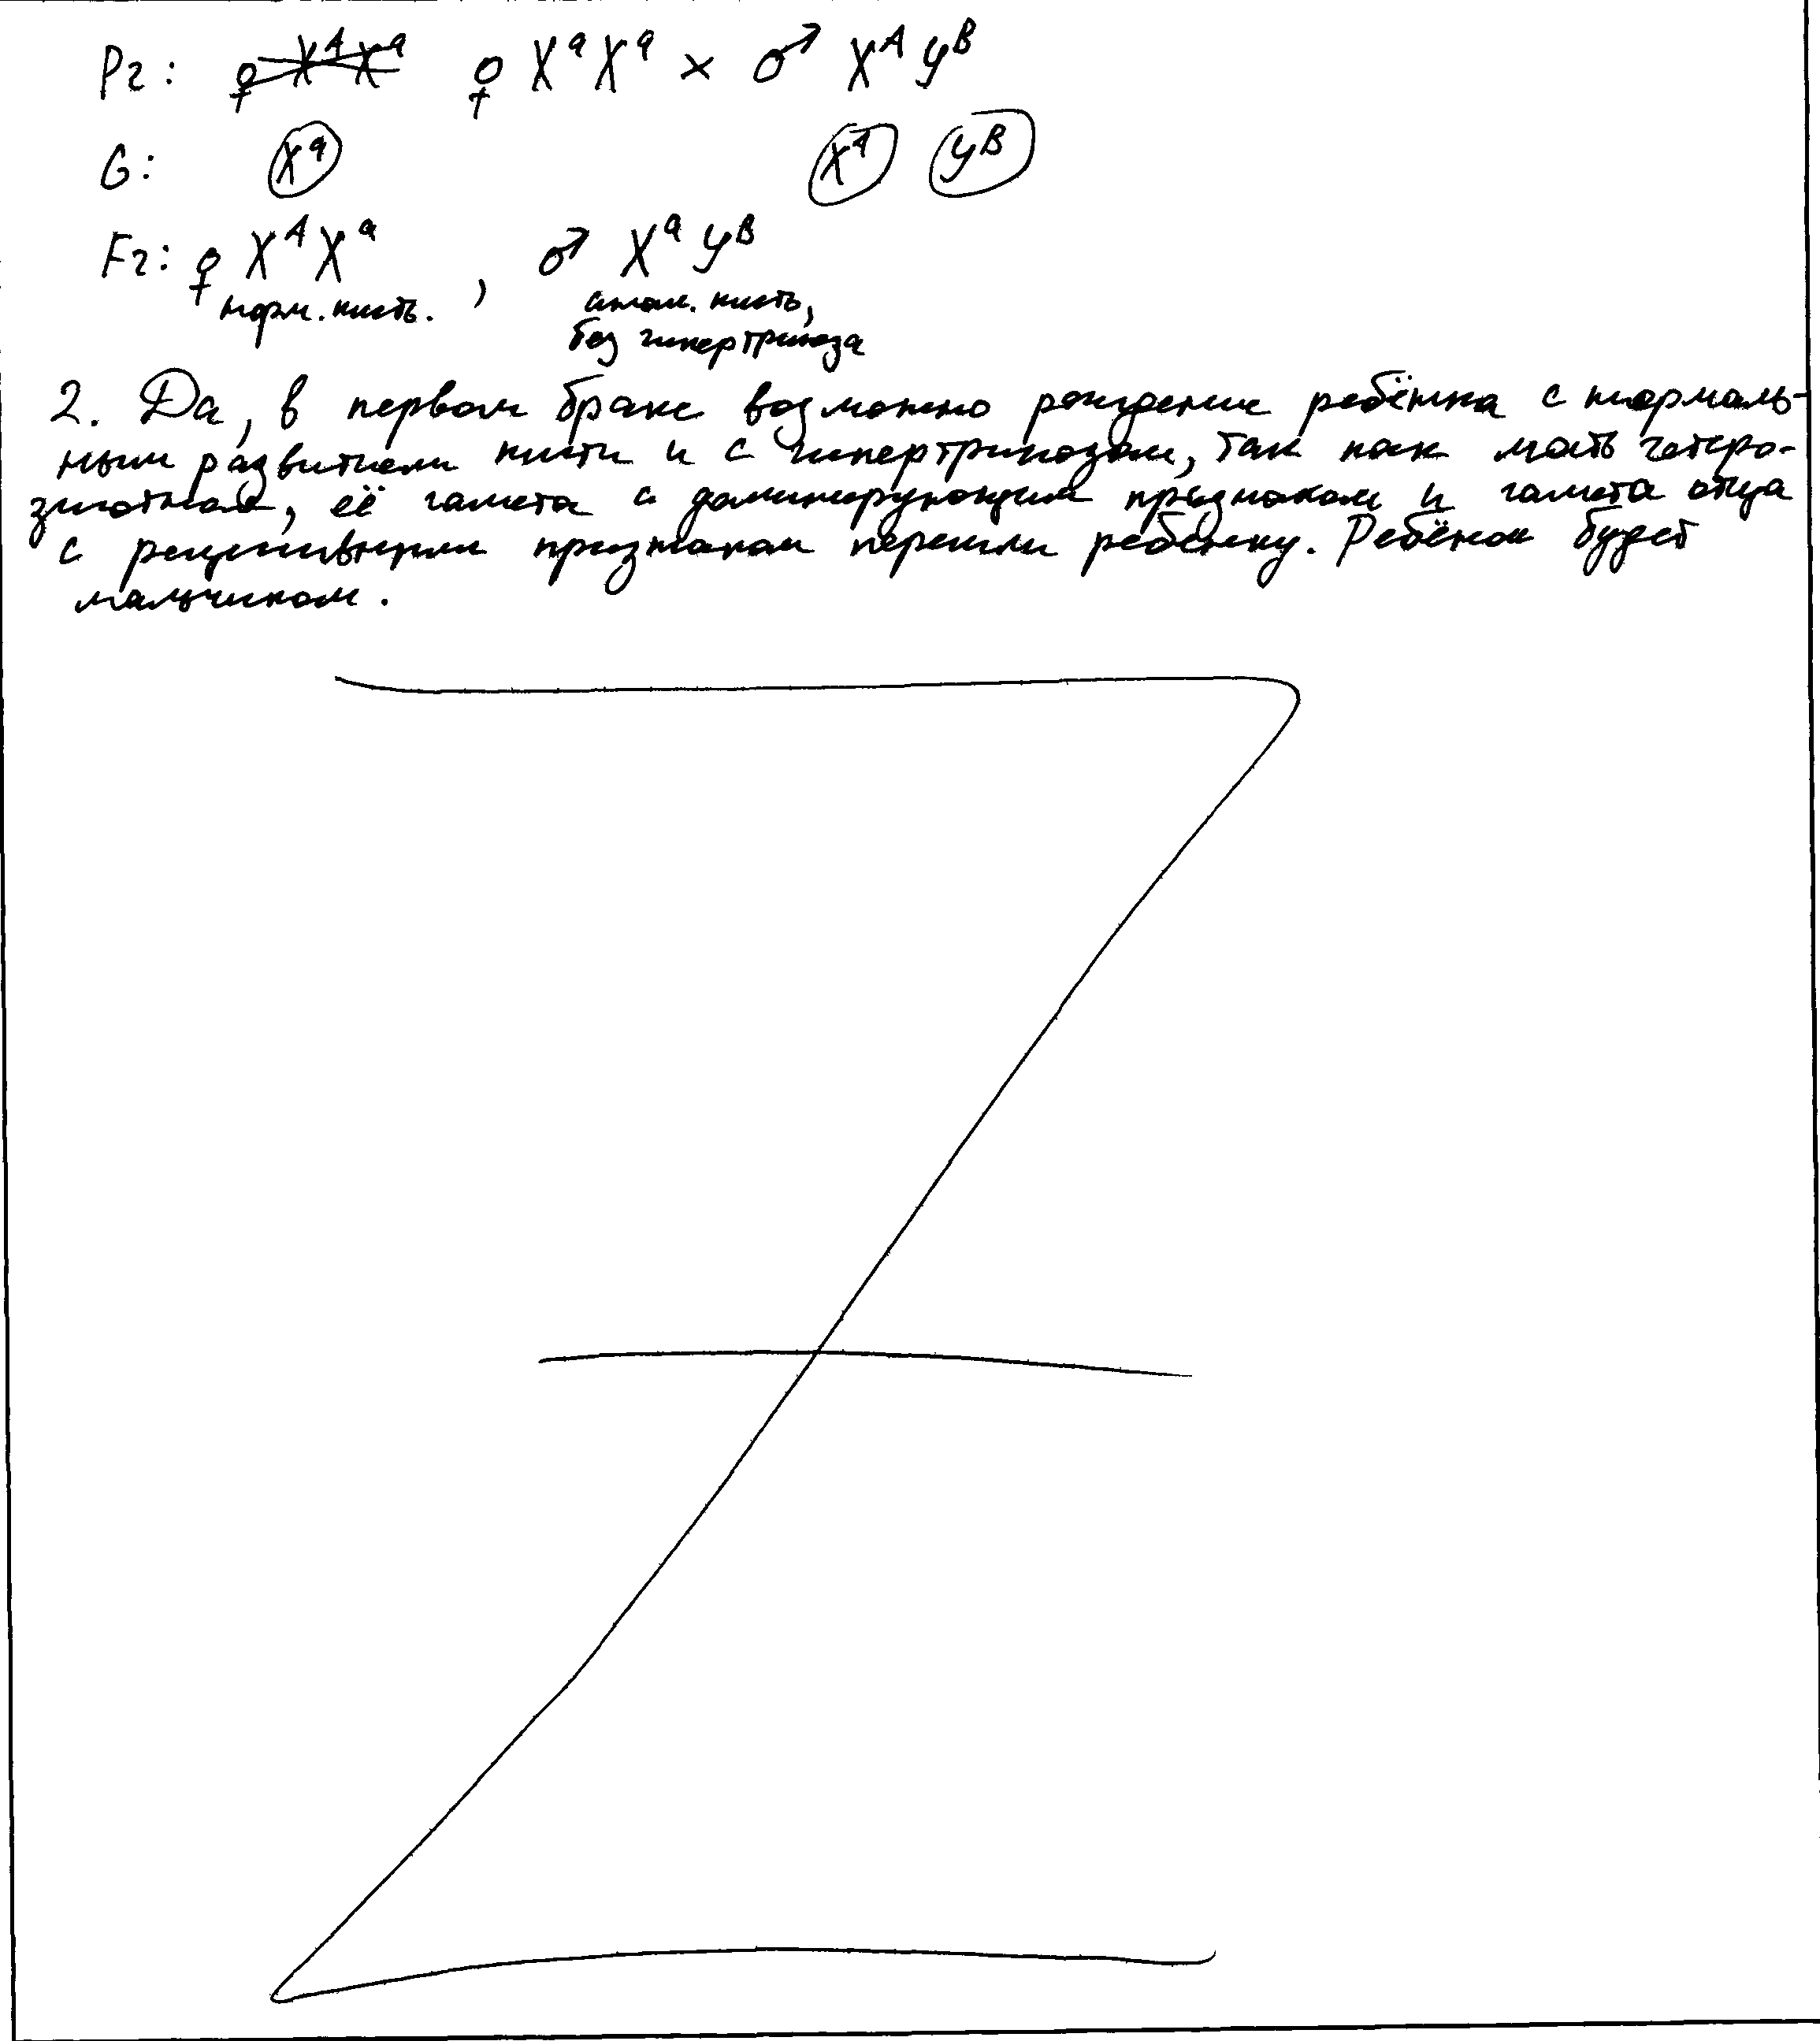 P2: ♀ X^A X^a ♀ X^a X^a × ♂ X^A y^B
G: X^a X^A y^B
F2: ♀ X^A X^a , ♂ X^a y^B
норм. кисть. аном. кисть,
без гипертрихоза
2. Да, в первом браке возможно рождение ребёнка с нормаль-
ным развитием кисти и с гипертрихозом, так как мать гетеро-
зиготная, её гамета с доминирующим признаком и гамета отца
с рецессивным признаком перешли ребёнку. Ребёнок будет
мальчиком.